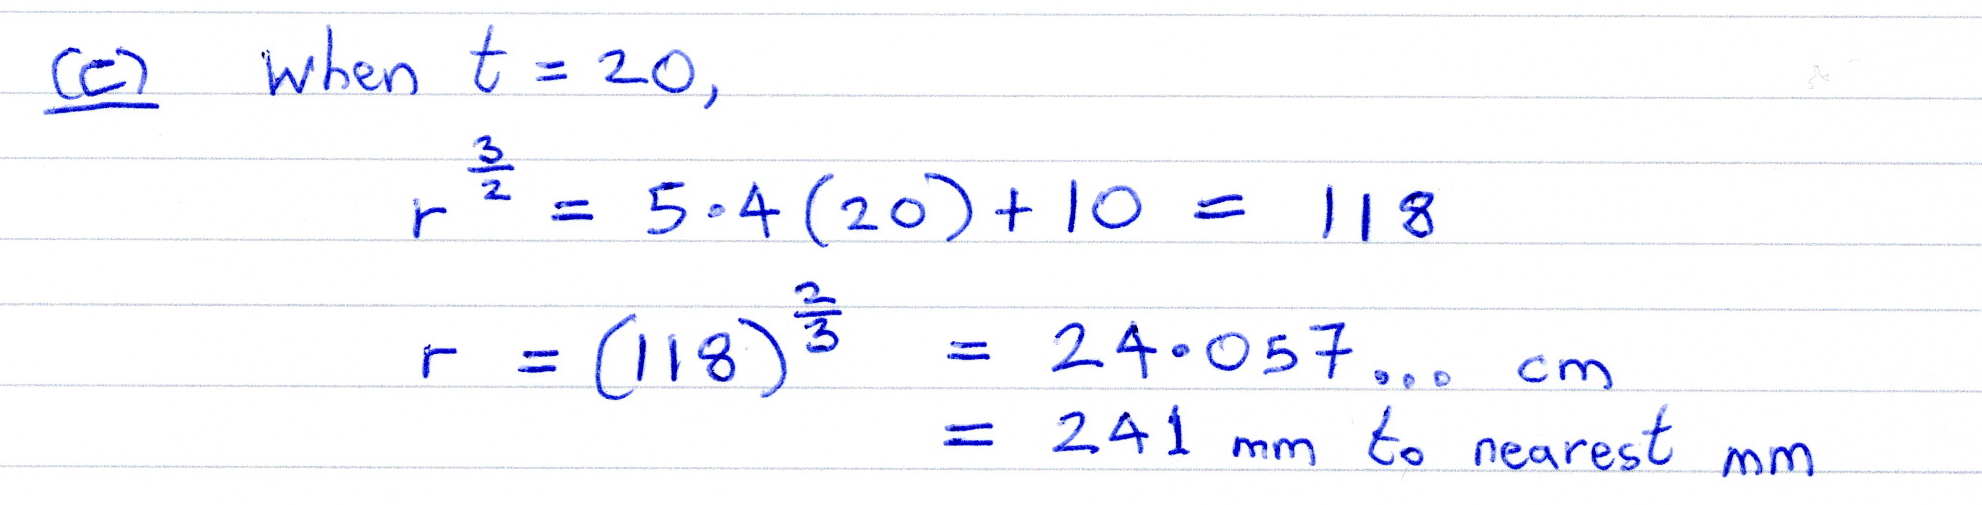 (c) When t = 20,
r^(3/2) = 5·4(20) + 10 = 118
r = (118)^(2/3) = 24·057... cm
= 241 mm to nearest mm